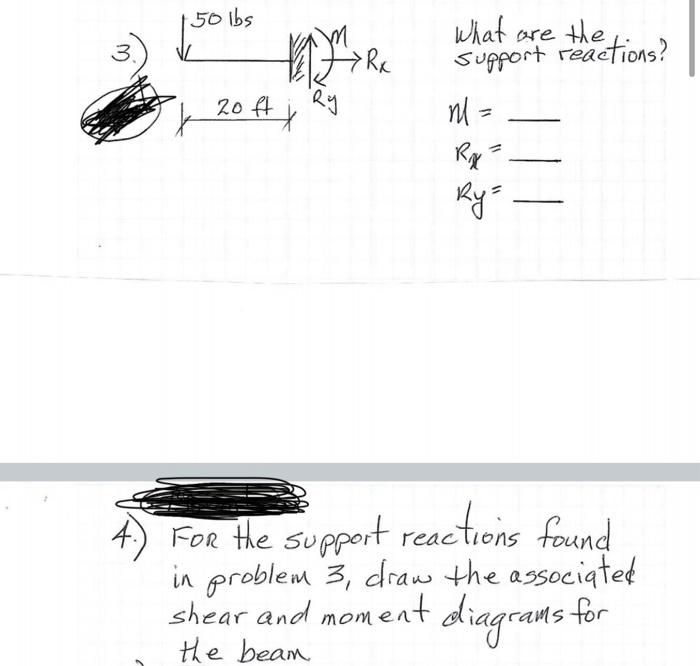 3.)
50 lbs
M
Rx
Ry
20 ft
What are the
support reactions?
M = __
Rx = __
Ry = __
4.) FOR the support reactions found
in problem 3, draw the associated
shear and moment diagrams for
the beam